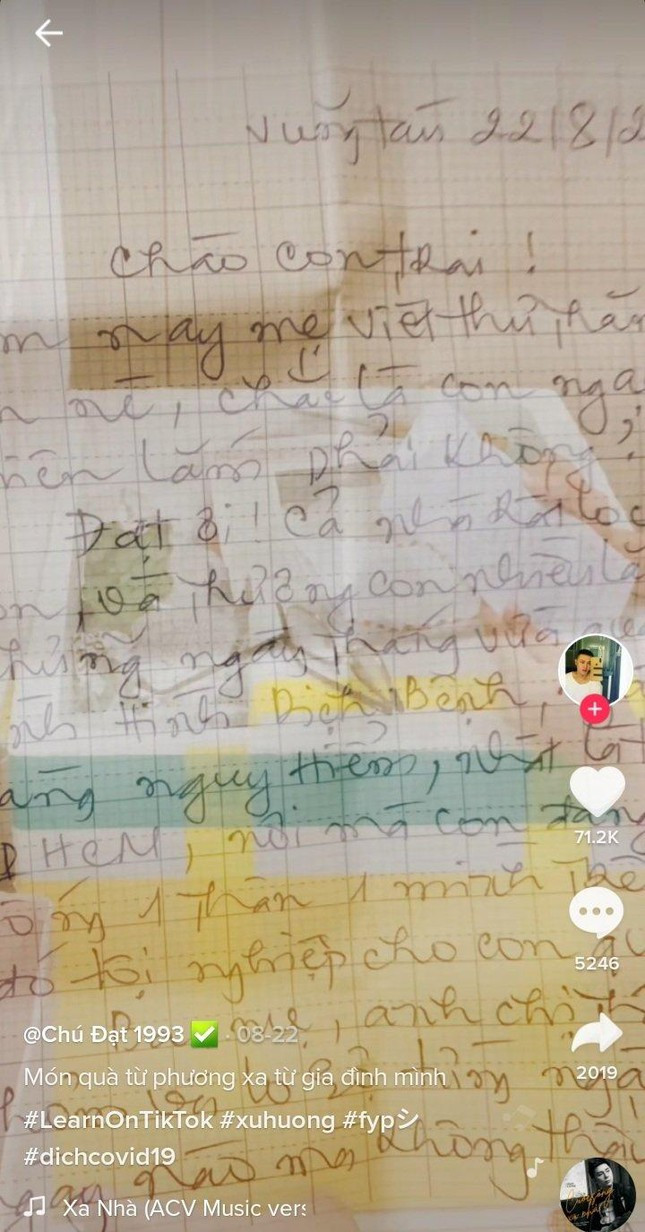 Vũng tàu 22/8/2
Chào con trai !
nay mẹ viết thư thăm
nè, chắc là con ngạ
nhiên lắm phải không?
Đạt ơi! Cả nhà rất lo
và thương con nhiều lắ
những ngày tháng vừa qua
tình hình Dịch Bệnh,
nguy hiểm, nhất là
HCM, nơi mà con đang
sống 1 thân 1 mình
đó tội nghiệp cho con
Ba mẹ, anh chị
không
ngày nào mà không
@Chú Đạt 1993 ✅ · 08-22
Món quà từ phương xa từ gia đình mình
#LearnOnTikTok #xuhuong #fypシ
#dichcovid19
Xa Nhà (ACV Music vers
71.2K
5246
2019